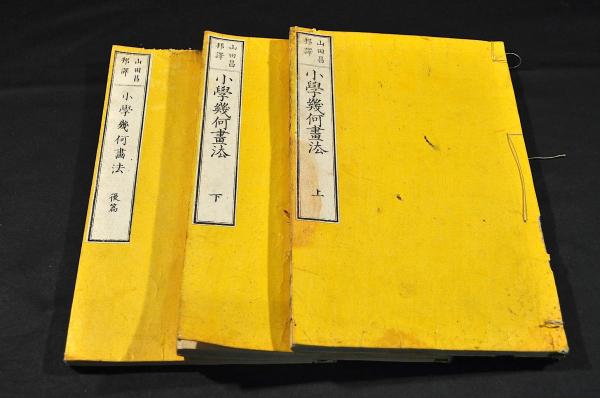 山田昌
邦譯
小學幾何畫法
上
山田昌
邦譯
小學幾何畫法
下
山田昌
邦譯
小學幾何畫法
後篇